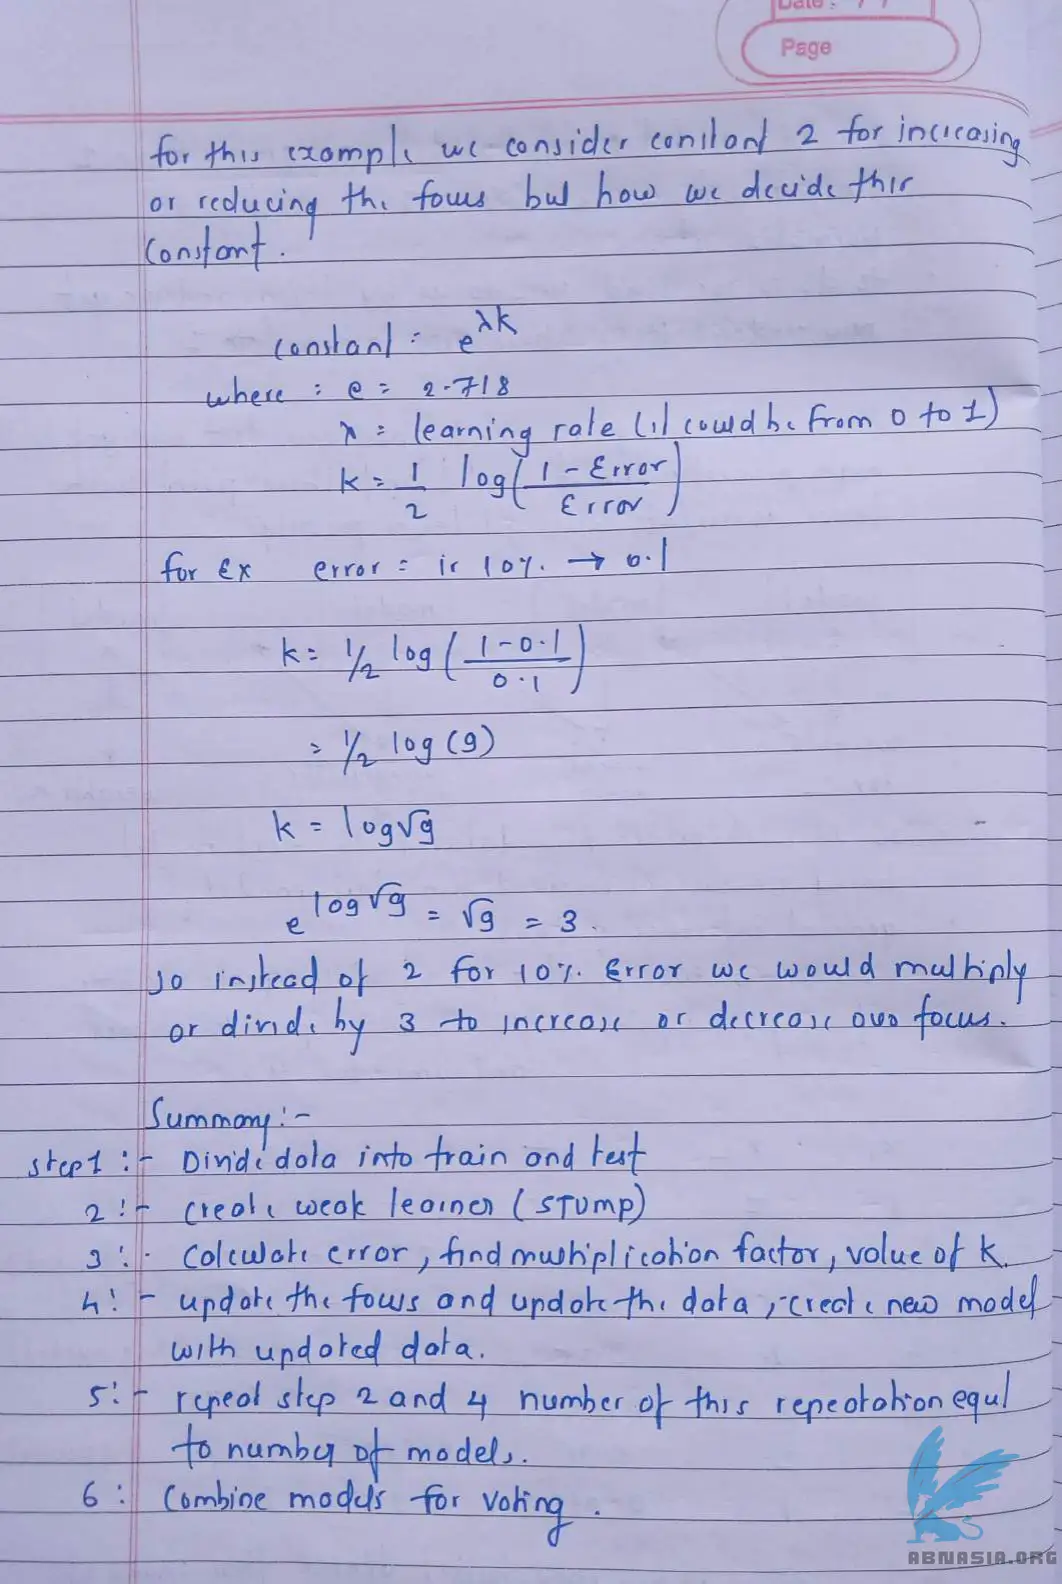 Date : / /
Page
for this example we consider constant 2 for increasing
or reducing the focus but how we decide this
constant.
constant = e^λk
where : e = 2.718
λ = learning rate (it could be from 0 to 1)
k = 1/2 log(1 - Error / Error)
for Ex error = is 10% → 0.1
k = 1/2 log(1-0.1 / 0.1)
= 1/2 log (9)
k = log√9
e^log√9 = √9 = 3.
so instead of 2 for 10% Error we would multiply
or divide by 3 to increase or decrease our focus.
Summary :-
step1 :- Divide data into train and test
2 :- create weak learner (STUMP)
3 :- calculate error, find multiplication factor, value of k.
4 :- update the focus and update the data, create new model
with updated data.
5 :- repeat step 2 and 4 number of this repeatation equl
to number of models.
6 : Combine models for voting.
ABNASIA.ORG